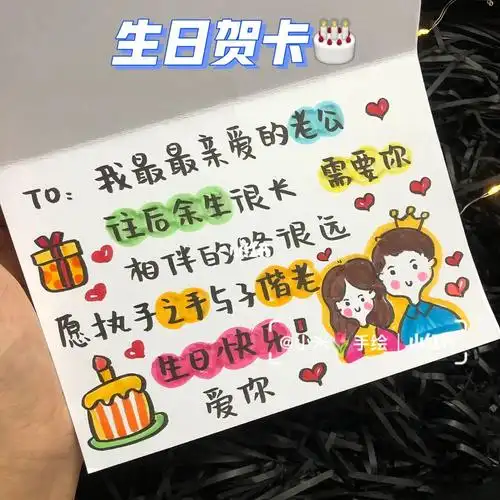 生日贺卡
TO：我最最亲爱的老公
需要你
往后余生很长
相伴的路很远
愿执子之手与子偕老
生日快乐！
爱你
手绘